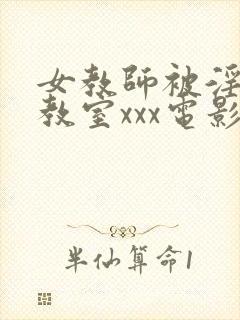 女教師被淫
教室xxx電影
半仙算命1